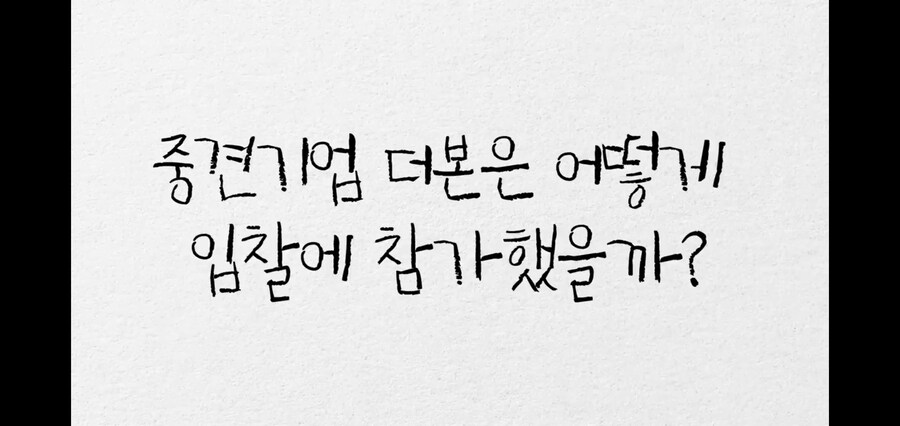 중견기업 더본은 어떻게
입찰에 참가했을까?